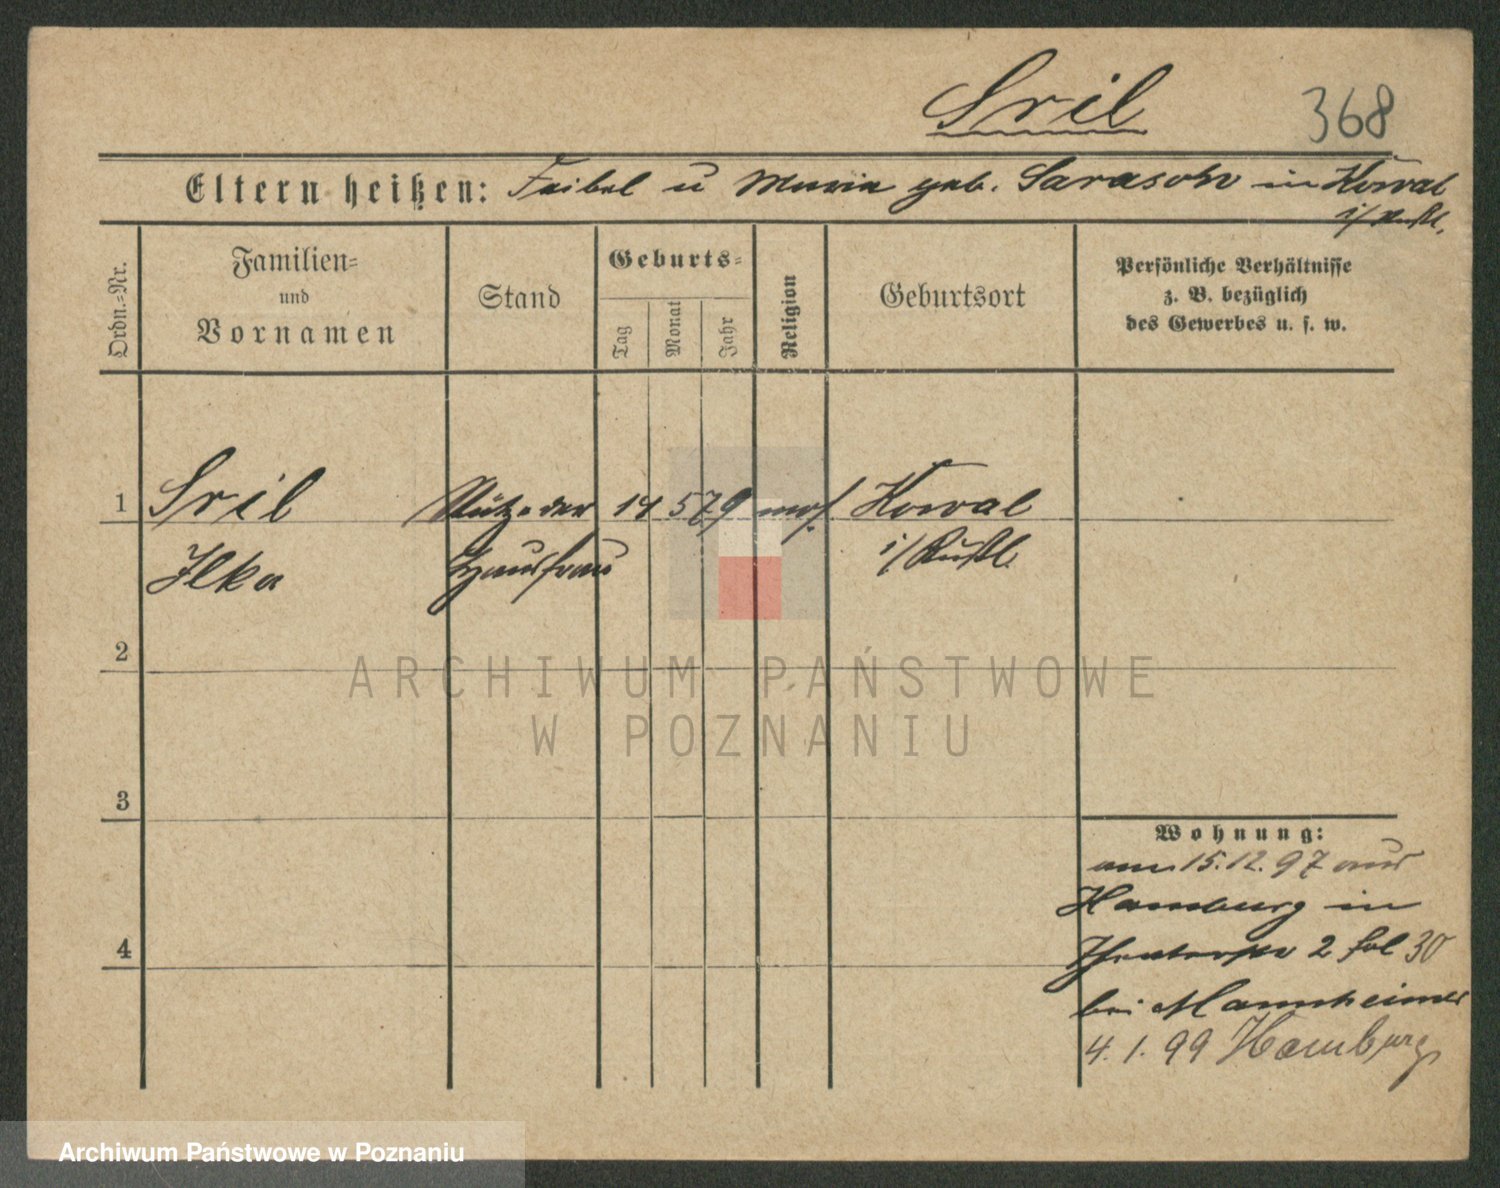 Sril
368
Eltern heißen: Feibel u Maria geb. Sarasohn in Kowal
i/Rußl.
Ordn.-Nr.
Familien-
und
Vornamen
Stand
Geburts-
Tag
Monat
Jahr
Religion
Geburtsort
Persönliche Verhältnisse
z. B. bezüglich
des Gewerbes u. s. w.
1 Sril Stütze der 14 5 79 mos. Kowal
Ilka Hausfrau i/Rußl.
2
3
4
ARCHIWUM PAŃSTWOWE
W POZNANIU
Wohnung:
am 15.12.97 aus
Hamburg in
Theaterstr 2 fol 30
bei Mannheimer
4.1.99 Hamburg
Archiwum Państwowe w Poznaniu